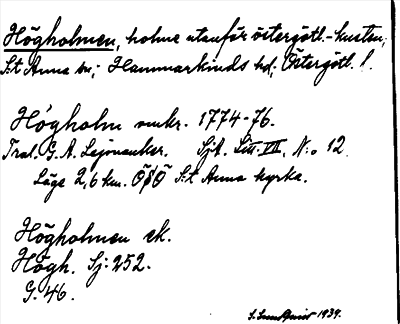 Högholmen, holme utanför östergötl.-kusten;
S:t Anna sn; Hammarkinds hd; Östergötl. l.
Högholm omkr. 1774-76.
G. A. Lejonanker. Sjk. Litt. VII, N:o 12.
Läge 2,6 km. OSO S:t Anna kyrka.
Högholmen ek.
Högh. Sj: 252.
G. 46.
1939.